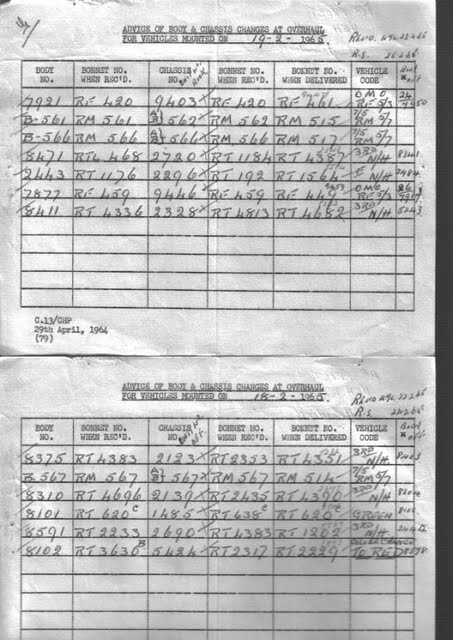 ADVICE OF BODY & CHASSIS CHANGES AT OVERHAUL
FOR VEHICLES MOUNTED ON 19-2-1965
BODY NO. BONNET NO. WHEN REC'D. CHASSIS NO. BONNET NO. WHEN REC'D. BONNET NO. WHEN DELIVERED VEHICLE CODE
7921 RF 420 9403 RF 420 RF 461 OMO RF 5/3
B-561 RM 561 562 RM 562 RM 515 7/5 RM 5/7
B-566 RM 566 566 RM 566 RM 517 7/5 RM 5/7
8471 RTL 468 2720 RT 1184 RT 4387 3RD N/H
2443 RT 1176 2296 RT 192 RT 1564 N/H 2484
7877 RF 459 9446 RF 459 OMO
8411 RT 4336 2328 RT 4813 RT 4682 3RD N/H 5243
C.13/CHP
29th April, 1964
(79)
ADVICE OF BODY & CHASSIS CHANGES AT OVERHAUL
FOR VEHICLES MOUNTED ON 18-2-1965
BODY NO. BONNET NO. WHEN REC'D. CHASSIS NO. BONNET NO. WHEN REC'D. BONNET NO. WHEN DELIVERED VEHICLE CODE
8375 RT 4383 2123 RT 2353 RT 4351 3RD N/H
B-567 RM 567 567 RM 567 RM 514 7/5 RM 5/7
8310 RT 4696 2139 RT 2435 RT 4390 3RD N/H
8101 RT 620 C 1485 RT 638 C RT 620 GREEN
8591 RT 2233 2690 RT 4383 RT 1202 3RD N/H
8102 RT 3630 B 5424 RT 2317 RT 2229 COLOUR CHANGED TO RED 8578